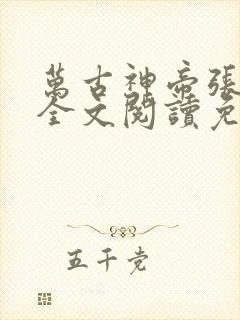 萬古神帝張
全文閱讀免
五千党